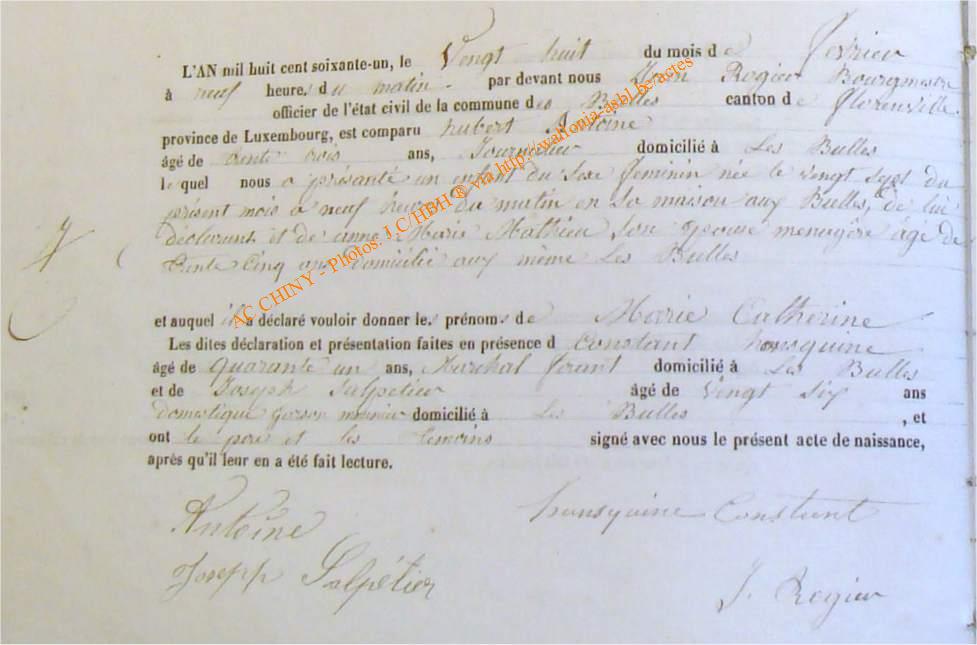 L'AN mil huit cent soixante-un, le Vingt huit du mois de fevrier
à neuf heures du matin par devant nous Jean Regier Bourgmestre
officier de l'état civil de la commune des Bulles canton de florenville
province de Luxembourg, est comparu hubert Antoine
âgé de trente trois ans, Journalier domicilié à Les Bulles
lequel nous a présanté un enfant du sexe feminin née le vingt sept du
présent mois à neuf heures du matin en sa maison aux Bulles, de lui
déclarant et de anne Marie Mathieu son epouse menagère âgé de
trente Cinq ans domicilié aux même Les Bulles
et auquel il a déclaré vouloir donner les prénoms de Marie Catherine
Les dites déclaration et présentation faites en présence d Constant hansquine
âgé de quarante un ans, Marchal ferant domicilié à Les Bulles
et de Joseph Salpetier âgé de vingt six ans
domestique garson meunier domicilié à Les Bulles , et
ont le pere et les temoins signé avec nous le présent acte de naissance,
après qu'il leur en a été fait lecture.
Antoine hansquine Constant
Joseph Salpétier
J. Regier
AC CHINY - Photos: J.C/HBH ® via http://wallonia-asbl.be/actes